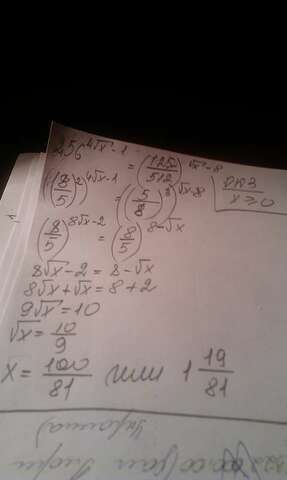 256^{4√x-1} = (125/512)^{√x-8}
((8/5)^2)^{4√x-1} = ((5/8)^3)^{√x-8}
ОДЗ
x ≥ 0
(8/5)^{8√x-2} = (8/5)^{8-√x}
8√x - 2 = 8 - √x
8√x + √x = 8 + 2
9√x = 10
√x = 10/9
x = 100/81 или 1 19/81